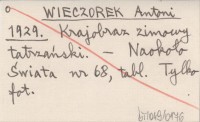 WIECZOREK Antoni
1929. Krajobraz zimowy
tatrzański. — Naokoło
Świata nr 68, tabl. Tylko
fot.